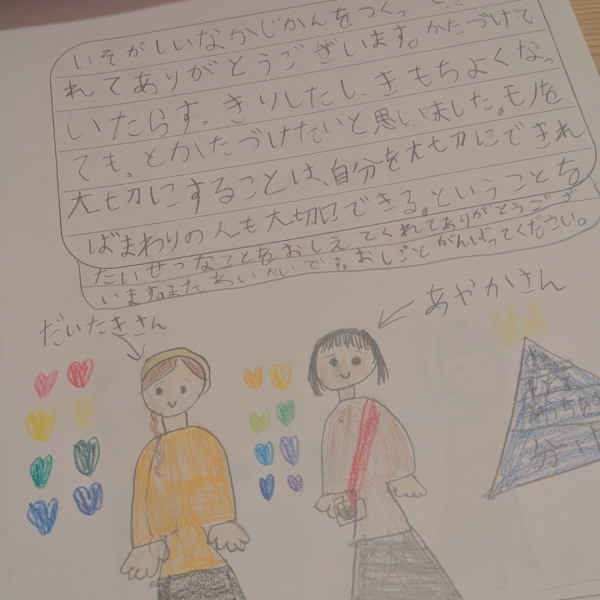 いそがしいなかじかんをつくっ
れてありがとうございます。かたづけて
いたらす、きりしたし、きもちよくなっ
ても、とかたづけたいと思いました。モノを
大切にすることは、自分を大切にできれ
ばまわりの人も大切にできる。ということを
たいせつなことをおしえてくれてありがとうござ
います。またあいたいです。おしごとがんばってください。
だいたきさん
あやかさん
分け